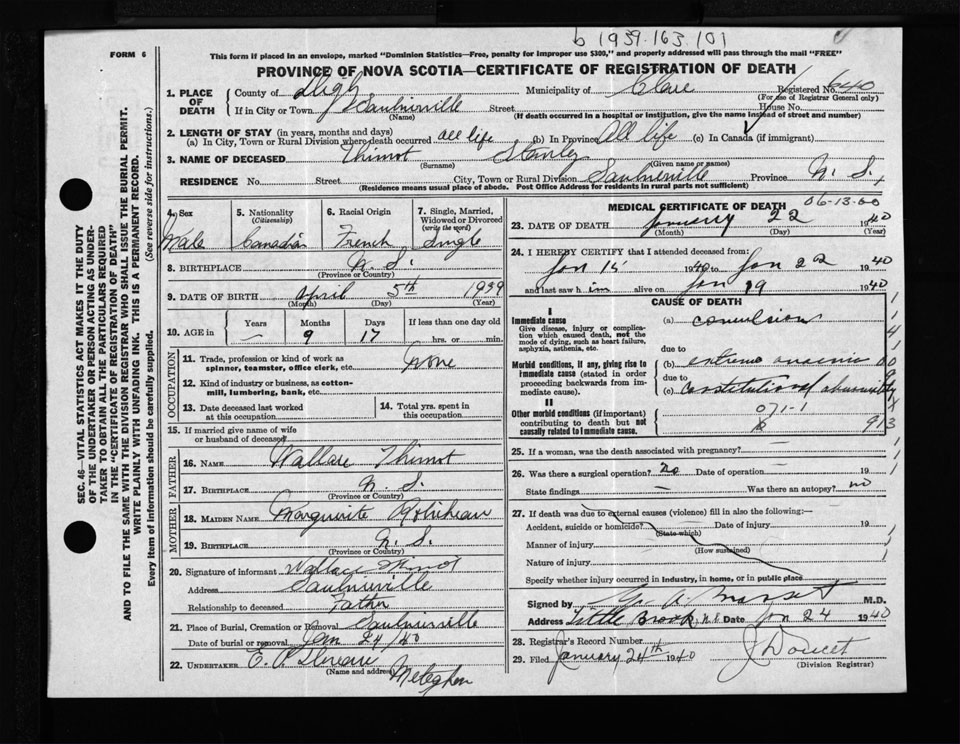 b 1939.163.101
FORM 6
This form if placed in an envelope, marked "Dominion Statistics—Free, penalty for improper use $300," and properly addressed will pass through the mail "FREE"
PROVINCE OF NOVA SCOTIA—CERTIFICATE OF REGISTRATION OF DEATH
1. PLACE OF DEATH County of Digby Municipality of Clare Registered No. 640
(For use of Registrar General only)
If in City or Town Saulnierville Street House No.
(Name) (If death occurred in a hospital or institution, give the name instead of street and number)
2. LENGTH OF STAY (in years, months and days)
(a) In City, Town or Rural Division where death occurred all life (b) In Province All life (c) In Canada (if immigrant)
3. NAME OF DECEASED Thimot Stanley
(Surname) (Given name or names)
RESIDENCE No. Street City, Town or Rural Division Saulnierville Province N. S.
(Residence means usual place of abode. Post Office Address for residents in rural parts not sufficient)
4. Sex 5. Nationality (Citizenship) 6. Racial Origin 7. Single, Married, Widowed or Divorced (write the word)
Male Canadian French Single
8. BIRTHPLACE N. S.
(Province or Country)
9. DATE OF BIRTH April 5th 1939
(Month) (Day) (Year)
10. AGE in Years Months Days If less than one day old
— 9 17 hrs. or min.
OCCUPATION
11. Trade, profession or kind of work as spinner, teamster, office clerk, etc. None
12. Kind of industry or business, as cotton-mill, lumbering, bank, etc.
13. Date deceased last worked at this occupation
14. Total yrs. spent in this occupation
15. If married give name of wife or husband of deceased
FATHER
16. NAME Wallace Thimot
17. BIRTHPLACE N. S.
(Province or Country)
MOTHER
18. MAIDEN NAME Marguerite Robicheau
19. BIRTHPLACE N. S.
(Province or Country)
20. Signature of informant Wallace Thimot
Address Saulnierville
Relationship to deceased Father
21. Place of Burial, Cremation or Removal Saulnierville
Date of burial or removal Jan 24/40
22. UNDERTAKER E. P.
(Name and address) Meteghan
MEDICAL CERTIFICATE OF DEATH 06-13-00
23. DATE OF DEATH January 22 1940
(Month) (Day) (Year)
24. I HEREBY CERTIFY that I attended deceased from:
Jan 15 1940 to Jan 22 1940
and last saw him alive on Jan 19 1940
CAUSE OF DEATH
I
Immediate cause (a) convulsion
Give disease, injury or complication which caused death, not the mode of dying, such as heart failure, asphyxia, asthenia, etc.
due to
Morbid conditions, if any, giving rise to immediate cause (stated in order proceeding backwards from immediate cause). (b) extreme anaemia
due to
(c) constitutional
II
Other morbid conditions (if important) contributing to death but not causally related to immediate cause.
071-1
913
25. If a woman, was the death associated with pregnancy?
26. Was there a surgical operation? no Date of operation — 19
State findings — Was there an autopsy? no
27. If death was due to external causes (violence) fill in also the following:—
Accident, suicide or homicide? Date of injury 19
(State which)
Manner of injury
(How sustained)
Nature of injury
Specify whether injury occurred in industry, in home, or in public place
Signed by M.D.
Address Little Brook, N.S. Date Jan 24 1940
28. Registrar's Record Number
29. Filed January 24th 1940 J Doucet
(Division Registrar)
SEC. 46—VITAL STATISTICS ACT MAKES IT THE DUTY
OF THE UNDERTAKER OR PERSON ACTING AS UNDER-
TAKER TO OBTAIN ALL THE PARTICULARS REQUIRED
IN THE "CERTIFICATE OF REGISTRATION OF DEATH"
AND TO FILE THE SAME WITH THE DIVISION REGISTRAR WHO SHALL ISSUE THE BURIAL PERMIT.
WRITE PLAINLY WITH UNFADING INK. THIS IS A PERMANENT RECORD.
Every item of information should be carefully supplied. (See reverse side for instructions.)